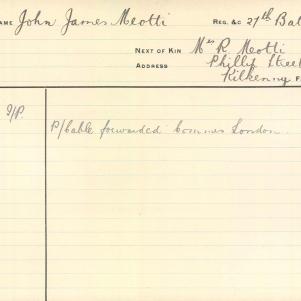 AME John James Meotti REG. &C 27th Bat
NEXT OF KIN Mrs R Meotti
ADDRESS Phillip Street
Kilkenny
P/Cable forwarded Commes London